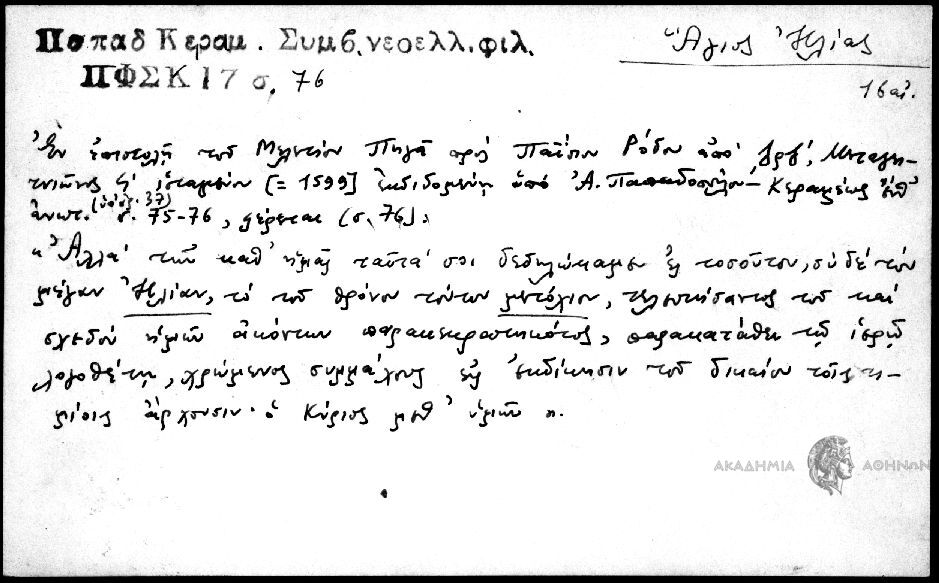 Παπαδ Κεραμ. Συμβ. νεοελλ. φιλ.
ΠΦΣΚ 17 σ. 76
Ἅγιος Ἠλίας
16 αἰ.
Ἐν ἐπιστολῇ τοῦ Μελετίου Πηγᾶ πρὸς Παΐσιον Ῥόδου ἀπὸ ͵αφϟθ', Μεταγει-
τνιῶνος ϛ' ἱσταμένου [= 1599] ἐκδιδομένῃ ὑπὸ Ἀ. Παπαδοπούλου-Κεραμέως ἐνθ'
ἀνωτ. (ὑπὸ ἀρ. 37) σ. 75-76, φέρεται (σ. 76):
« Ἀλλὰ τῶν καθ' ἡμᾶς ταῦτά σοι δεδηλώκαμεν ἐς τοσοῦτον, σὺ δὲ τὸν
μέγαν Ἠλίαν, τὸ τοῦ θρόνου τούτου μετόχιον, τελευτήσαντος τοῦ καὶ
σχεδὸν ἡμῶν ἀκόντων παρακεκρατηκότος, παρακατάθει τῷ ἱερῷ
λογοθέτῃ, χρώμενος συμμάχοις εἰς ἐκδίκησιν τοῦ δικαίου τοῖς τι-
μίοις ἄρχουσιν· ὁ Κύριος μεθ' ὑμῶν ».
ΑΚΑΔΗΜΙΑ ΑΘΗΝΩΝ